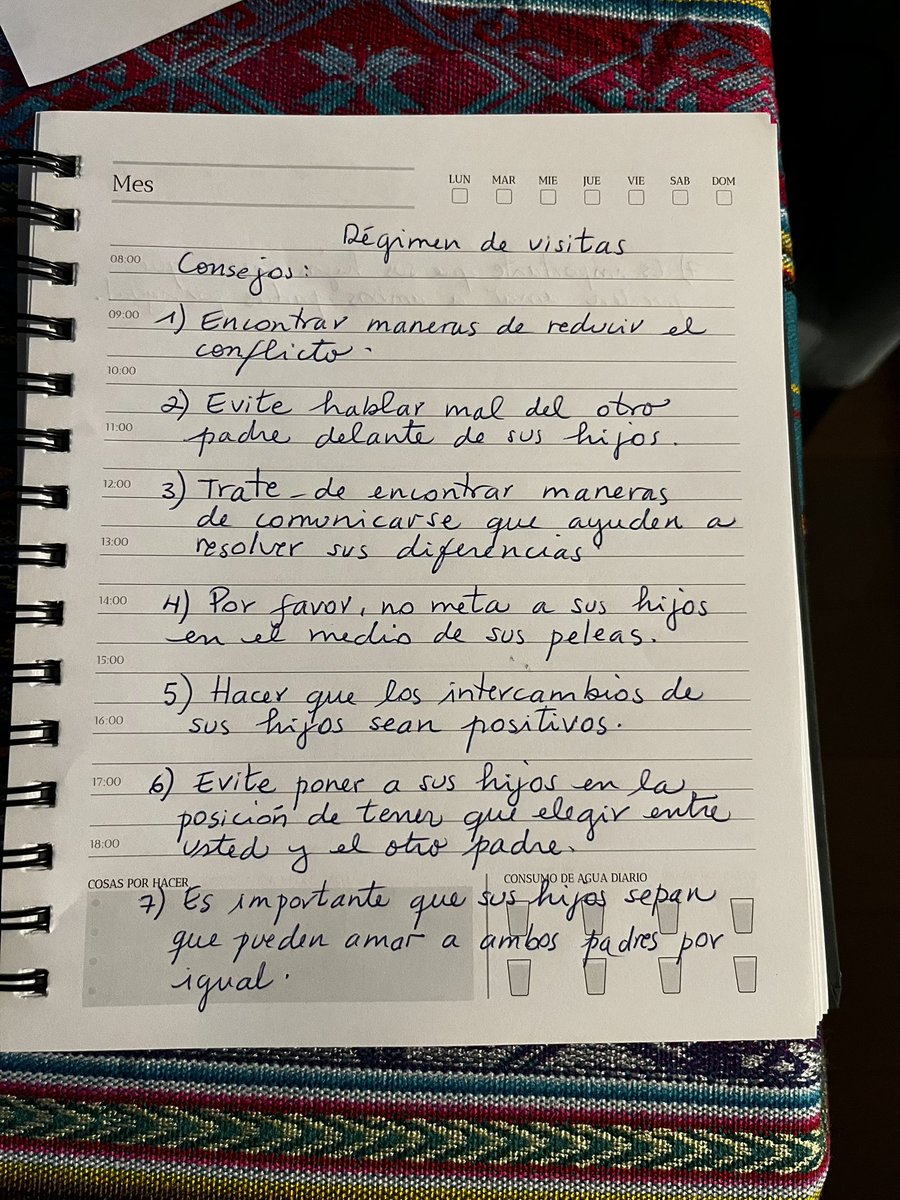 Mes
LUN MAR MIE JUE VIE SAB DOM
Régimen de visitas
08:00
Consejos:
09:00
1) Encontrar maneras de reducir el
conflicto.
10:00
2) Evite hablar mal del otro
11:00
padre delante de sus hijos.
12:00
3) Trate - de encontrar maneras
de comunicarse que ayuden a
13:00
resolver sus diferencias
14:00
4) Por favor, no meta a sus hijos
en el medio de sus peleas.
15:00
5) Hacer que los intercambios de
16:00
sus hijos sean positivos.
17:00
6) Evite poner a sus hijos en la
posición de tener que elegir entre
18:00
usted y el otro padre.
COSAS POR HACER
CONSUMO DE AGUA DIARIO
7) Es importante que sus hijos sepan
que pueden amar a ambos padres por
igual.